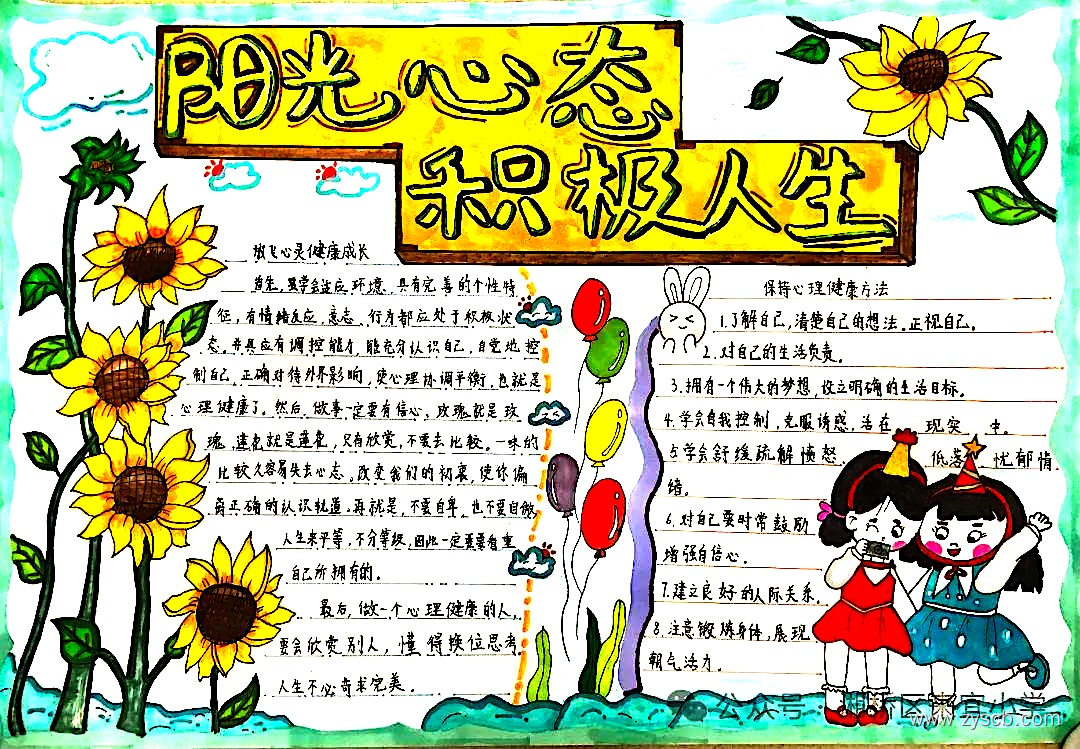 阳光心态
积极人生
放飞心灵健康成长
首先,要学会适应环境,具有完善的个性特
征,有情绪反应、意志、行为都应处于积极状
态。并具应有调控能力,能充分认识自己,自觉地控
制自己,正确对待外界影响,使心理协调平衡,也就是
心理健康了。然后,做事一定要有信心,玫瑰就是玫
瑰,莲花就是莲花,只有欣赏,不要去比较。一味的
比较久容易失去心态,改变我们的初衷,使你偏
离正确的认识轨道。再就是,不要自卑,也不要自傲
人生来平等,不分等级,因此一定要看重
自己所拥有的。
最后,做一个心理健康的人,
要会欣赏别人,懂得换位思考。
人生不必苛求完美。
保持心理健康方法
1.了解自己,清楚自己的想法。正视自己。
2.对自己的生活负责。
3.拥有一个伟大的梦想,设立明确的生活目标。
4.学会自我控制,克服诱惑,活在 现实 中。
5.学会舒缓疏解愤怒、 低落、忧郁情
绪。
6.对自己要时常鼓励
增强自信心。
7.建立良好的人际关系。
8.注意锻炼身体,展现
朝气活力。
公众号 区 宜小学
www.zyscb.com